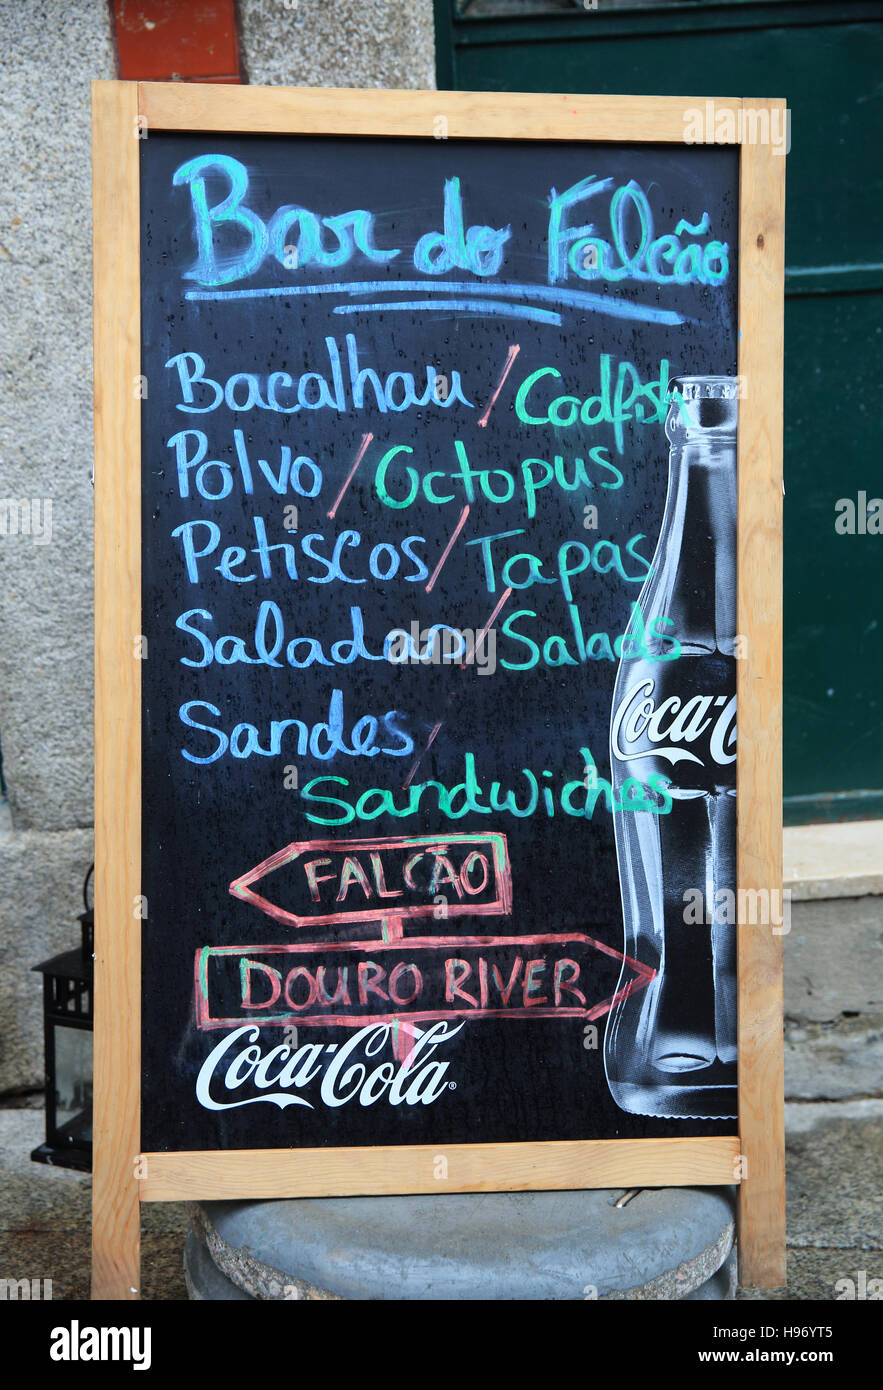 Bar do Falcão
Bacalhau / Codfish
Polvo / Octopus
Petiscos / Tapas
Saladas / Salads
Sandes /
Sandwiches
Coca-C
FALCÃO
DOURO RIVER
Coca-Cola®
alamy
alamy stock photo
H96YT5
www.alamy.com